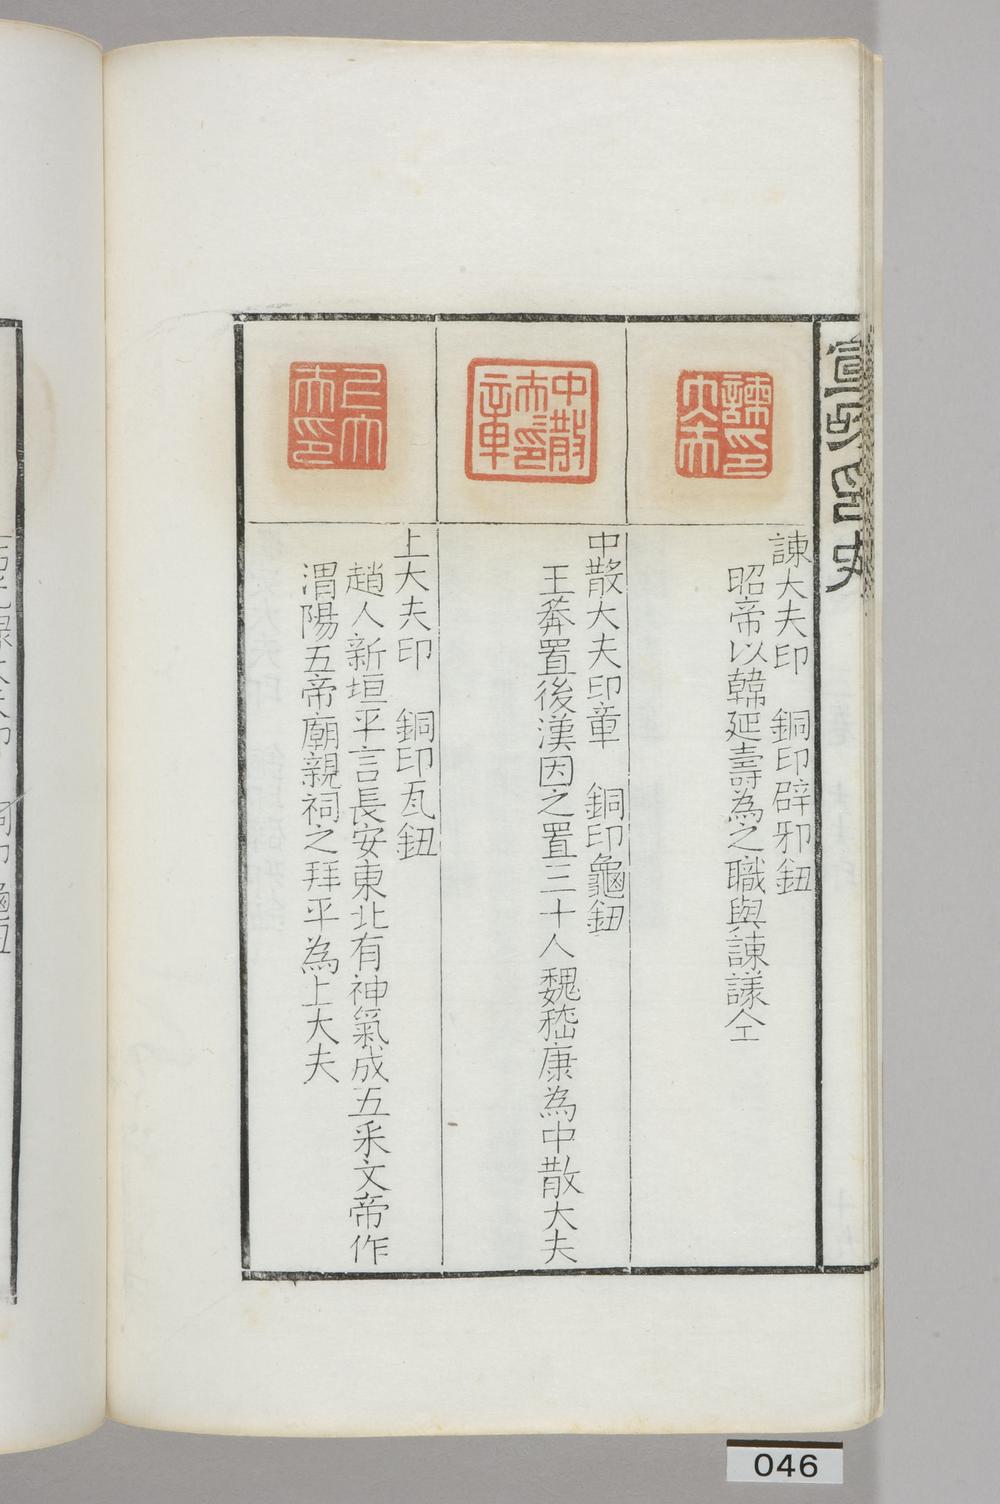 諫大夫印　銅印辟邪鈕
昭帝以韓延壽為之職與諫議仝
中散大夫印章　銅印龜鈕
王莽置後漢因之置三十人魏嵇康為中散大夫
上大夫印　銅印瓦鈕
趙人新垣平言長安東北有神氣成五采文帝作
渭陽五帝廟親祠之拜平為上大夫
046